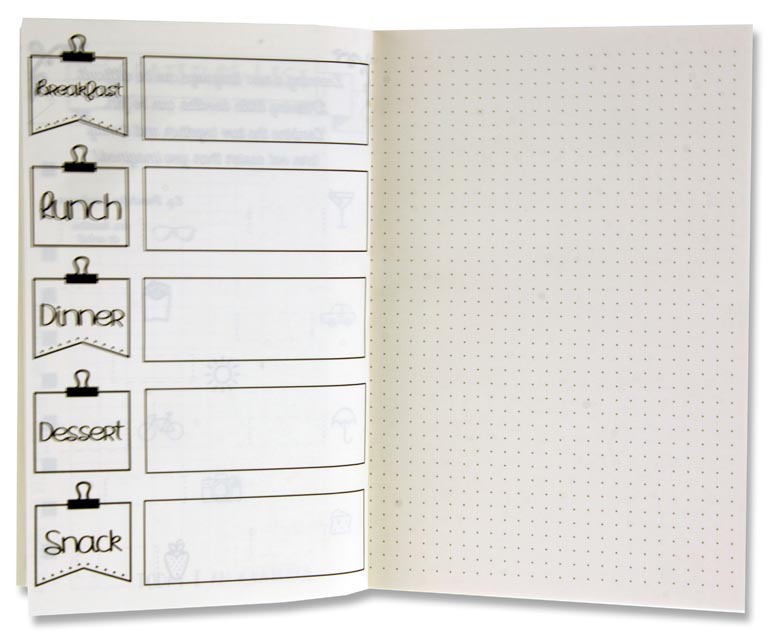 Breakfast
Lunch
Dinner
Dessert
Snack